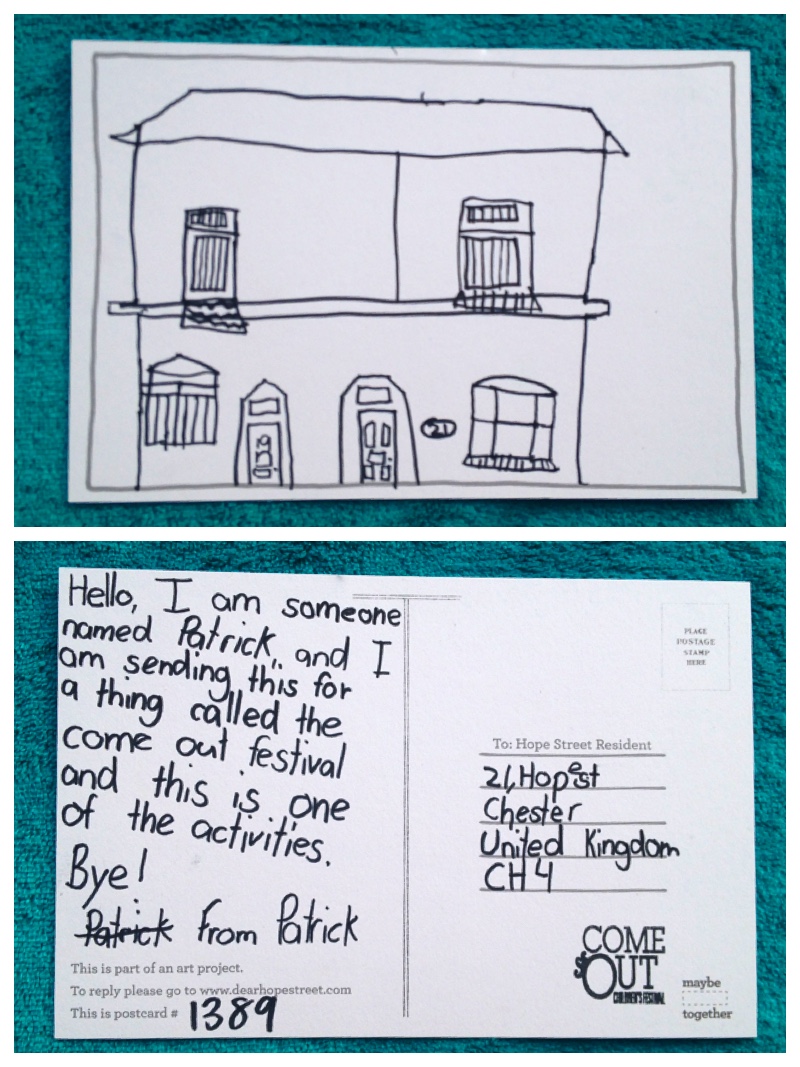 21
Hello, I am someone
named Patrick, and I
am sending this for
a thing called the
come out festival
and this is one
of the activities.
Bye!
Patrick from Patrick
This is part of an art project.
To reply please go to www.dearhopestreet.com
This is postcard # 1389
PLACE
POSTAGE
STAMP
HERE
To: Hope Street Resident
21, Hope st
Chester
United Kingdom
CH4
COME
OUT
CHILDREN'S FESTIVAL
maybe
together